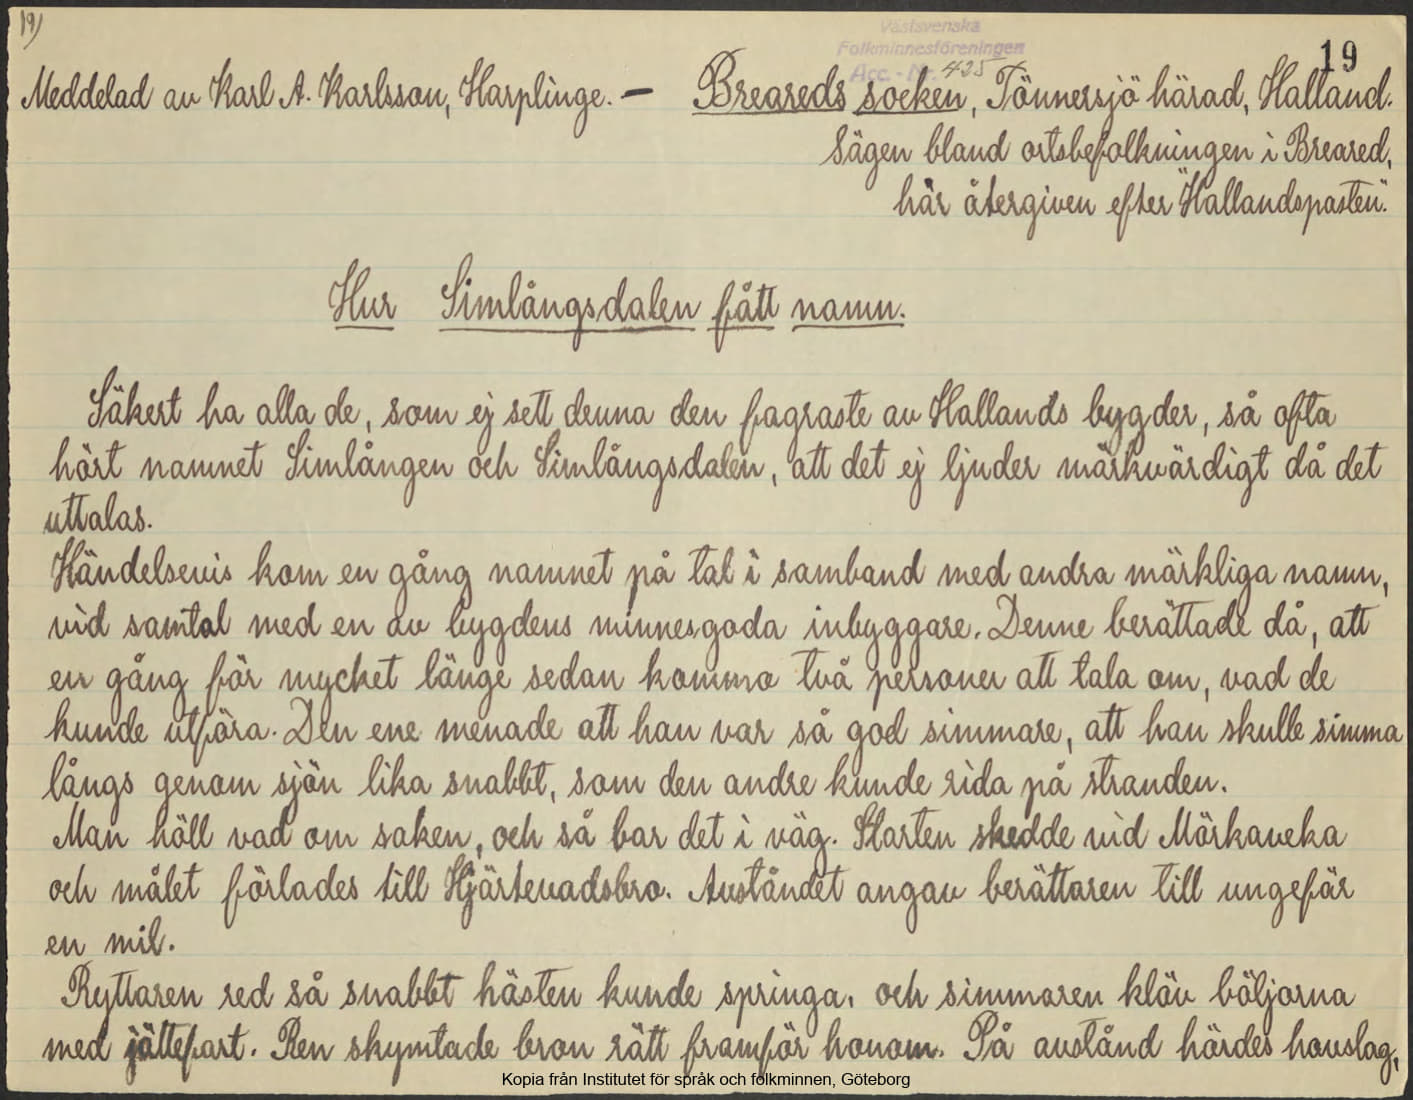 19)
Västsvenska
Folkminnesföreningen
Acc. - Nr. 425
19
Meddelad av Karl A. Karlsson, Harplinge. — Breareds socken, Tönnersjö härad, Halland.
Sägen bland ortsbefolkningen i Breared,
här återgiven efter "Hallandsposten".
Hur Simlångsdalen fått namn.
Säkert ha alla de, som ej sett denna den fagraste av Hallands bygder, så ofta
hört namnet Simlången och Simlångsdalen, att det ej ljuder märkvärdigt då det
uttalas.
Händelsevis kom en gång namnet på tal i samband med andra märkliga namn,
vid samtal med en av bygdens minnesgoda inbyggare. Denne berättade då, att
en gång för mycket länge sedan kommo två personer att tala om, vad de
kunde utföra. Den ene menade att han var så god simmare, att han skulle simma
långs genom sjön lika snabbt, som den andre kunde rida på stranden.
Man höll vad om saken, och så bar det i väg. Starten skedde vid Mörkaveka
och målet förlades till Hjärtevadsbro. Avståndet angav berättaren till ungefär
en mil.
Ryttaren red så snabbt hästen kunde springa, och simmaren klöv böljorna
med jättefart. Ren skymtade bron rätt framför honom. På avstånd hördes hovslag,
Kopia från Institutet för språk och folkminnen, Göteborg